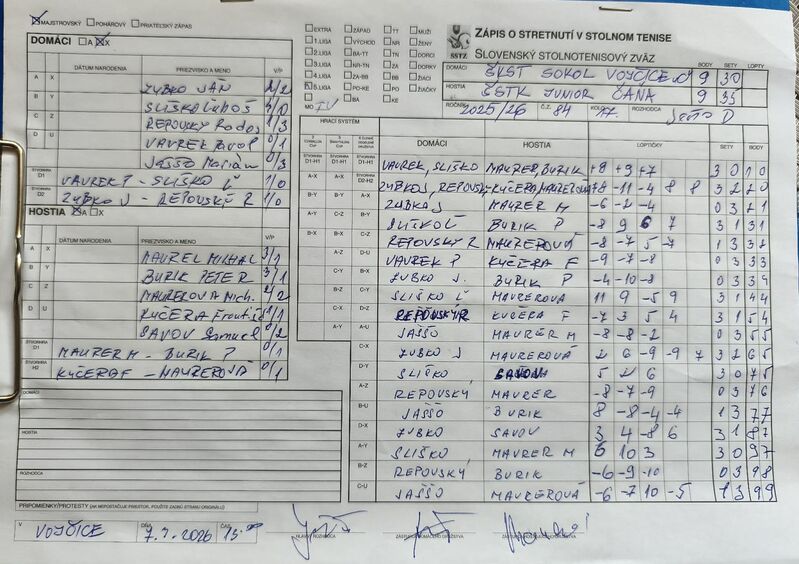 MAJSTROVSKÝ POHÁROVÝ PRIATEĽSKÝ ZÁPAS
DOMÁCI A X
DÁTUM NARODENIA PRIEZVISKO A MENO V/P
A X ZUBKO JÁN 2/2
B Y SLIŠKO Ľuboš 4/0
C Z REPOVSKÝ Rados 1/3
D U VAUREK Pavol 0/1
JASSO Marián 0/3
ŠTVORHRA D1 VAUREK P - SLIŠKO Ľ 1/0
ŠTVORHRA D2 ZUBKO J - REPOVSKÝ R 1/0
HOSTIA A X
DÁTUM NARODENIA PRIEZVISKO A MENO V/P
A X MAUREL MICHAL 3/1
B Y BURIK PETER 3/1
C Z MAUREROVA Mich. 2/2
D U KUČERA Františ 1/1
SAVOV Samuel 0/2
ŠTVORHRA D1 MAURER M - BURIK P 0/1
ŠTVORHRA H2 KUČERA F - MAUREROVÁ 0/1
DOMÁCI
HOSTIA
ROZHODCA
PRIPOMIENKY/PROTESTY (AK NEPOSTAČUJE PRIESTOR, POUŽITE ZADNÚ STRANU ORIGINÁLU)
V VOJČICE DŇA 7.2.2026 ČAS 15.00
HLAVNÝ ROZHODCA
ZÁSTUPCA DOMÁCEHO DRUŽSTVA
EXTRA ZÁPAD TT MUŽI
1.LIGA VÝCHOD NR ŽENY
2.LIGA BA-TT TN DORCI
3.LIGA NR-TN ZA DORKY
4.LIGA ZA-BB BB ŽIACI
5.LIGA PO-KE PO ŽIAČKY
MO IV BA KE
SSTZ
ZÁPIS O STRETNUTÍ V STOLNOM TENISE
SLOVENSKÝ STOLNOTENISOVÝ ZVÄZ
BODY SETY LOPTY
DOMÁCI ŠKST SOKOL VOJČICE 9 30
HOSTIA ŠSTK JUNIOR ČAŇA 9 35
ROČNÍK 2025/26 Č.Z. 84 KOLO ROZHODCA
HRACÍ SYSTÉM
DOMÁCI HOSTIA LOPTIČKY SETY BODY
D1-H1 D1-H1 D1-H1 VAUREK, SLIŠKO MAURER, BURIK +8 +9 +7 3 0 1 0
A-X A-X D2-H2 ZUBKO J, REPOVSKÝ KUČERA, MAUREROVÁ 8 -11 -4 8 8 3 2 2 0
B-Y B-Y A-X ZUBKO J MAURER M -6 -2 -4 0 3 2 1
A-Y C-Z B-Y SLIŠKO Ľ BURIK P -8 9 6 7 3 1 3 1
B-X B-X C-Z REPOVSKÝ R MAUREROVÁ -8 -7 5 -7 1 3 3 2
A-Z D-U VAUREK P KUČERA F -9 -7 -8 0 3 3 3
C-Y B-X ZUBKO J. BURIK P -4 -10 -8 0 3 3 4
B-Z SLIŠKO Ľ MAUREROVÁ 11 9 -5 9 3 1 4 4
C-X D-Z REPOVSKÝ R KUČERA F -7 3 5 4 3 1 5 4
A-Y A-U JAŠŠO MAURER M -8 -8 -2 0 3 5 5
C-X ZUBKO J MAUREROVÁ 2 6 -9 -9 7 3 2 6 5
D-Y SLIŠKO SAVOV 5 2 6 3 0 7 5
A-Z REPOVSKÝ MAURER -8 -7 -9 0 3 7 6
B-U JAŠŠO BURIK 8 -8 -4 -4 1 3 7 7
D-X ZUBKO SAVOV 3 4 -8 6 3 1 8 7
A-Y SLIŠKO MAURER M 6 10 3 3 0 9 7
B-Z REPOVSKÝ BURIK -6 -9 -10 0 3 9 8
C-U JAŠŠO MAUREROVÁ -6 -7 10 -5 1 3 9 9